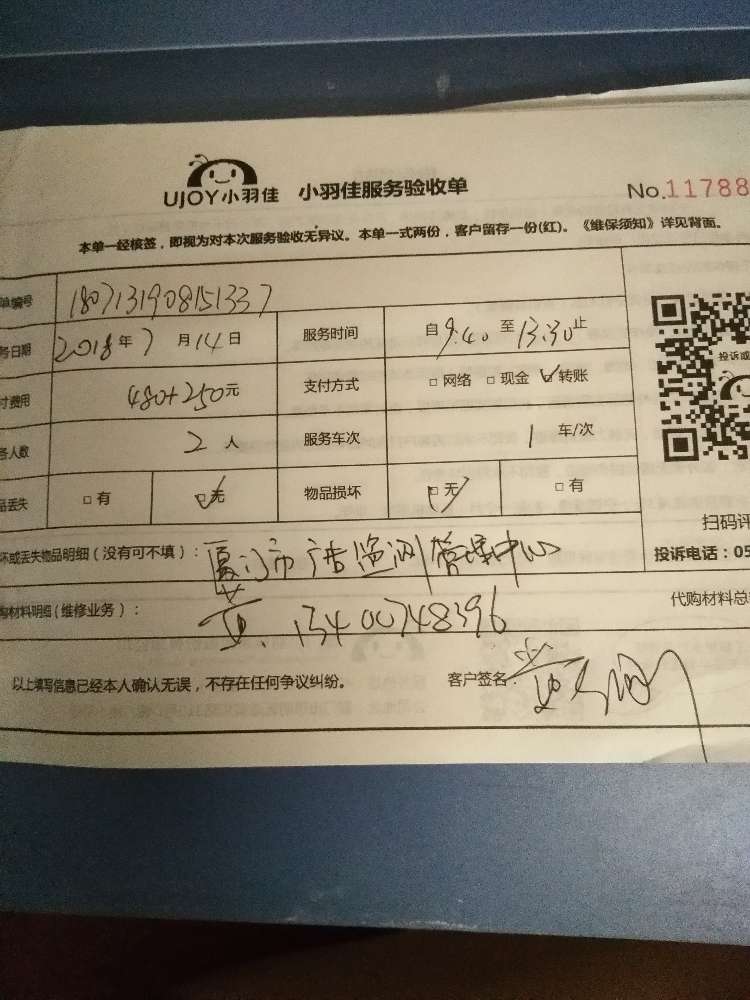 UJOY小羽佳 小羽佳服务验收单 No.11788
本单一经核签，即视为对本次服务验收无异议。本单一式两份，客户留存一份(红)。《维保须知》详见背面。
单编号 1807131908151337
务日期 2018年7月14日 服务时间 自9:40至13:30止
付费用 480+250元 支付方式 □网络 □现金 ☑转账
投诉或
务人数 2人 服务车次 1车/次
品丢失 □有 ☑无 物品损坏 ☑无 □有
扫码评
坏或丢失物品明细（没有可不填）： 厦门市广告监测管理中心 投诉电话：05
购材料明细（维修业务）： 黄. 13400748396 代购材料总
以上填写信息已经本人确认无误，不存在任何争议纠纷。 客户签名： 黄